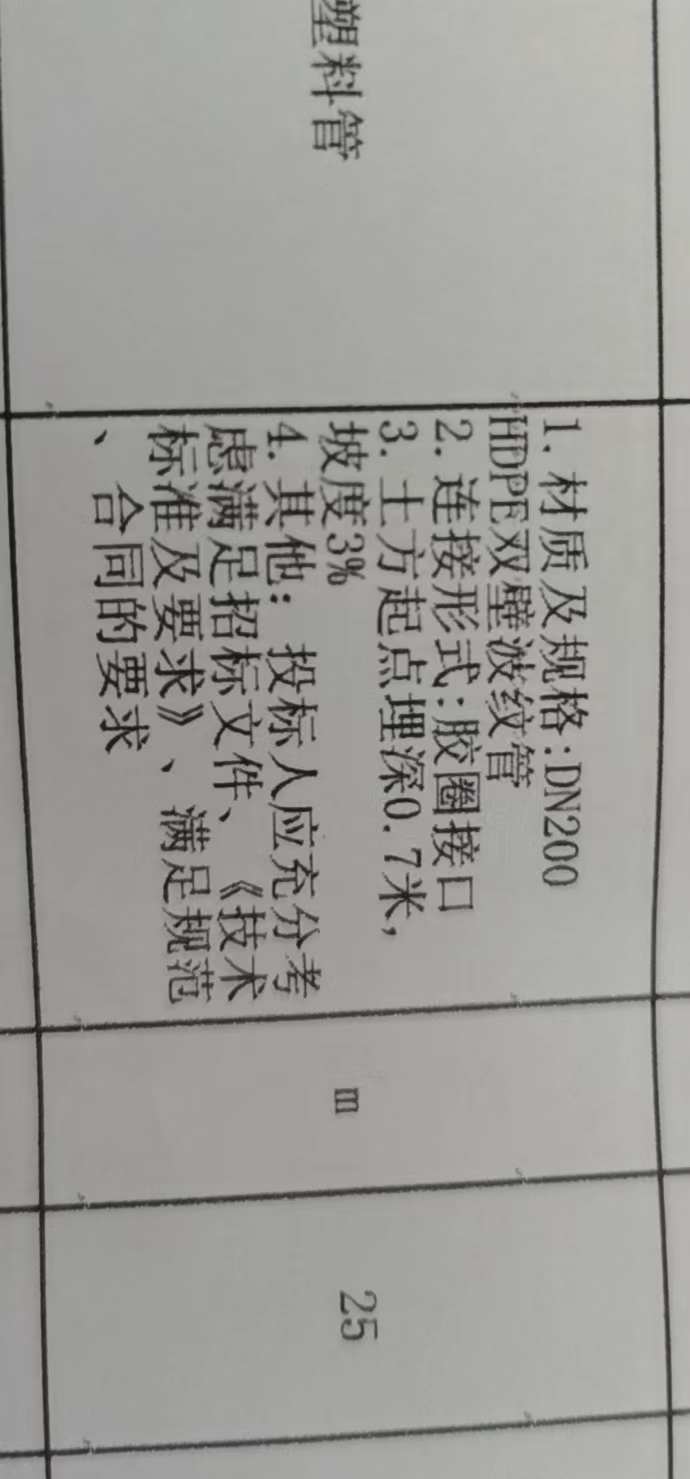 塑料管
1. 材质及规格:DN200
HDPE双壁波纹管
2. 连接形式:胶圈接口
3. 土方起点埋深0.7米,
坡度3%
4. 其他：投标人应充分考
虑满足招标文件、《技术
标准及要求》、满足规范
、合同的要求
m
25